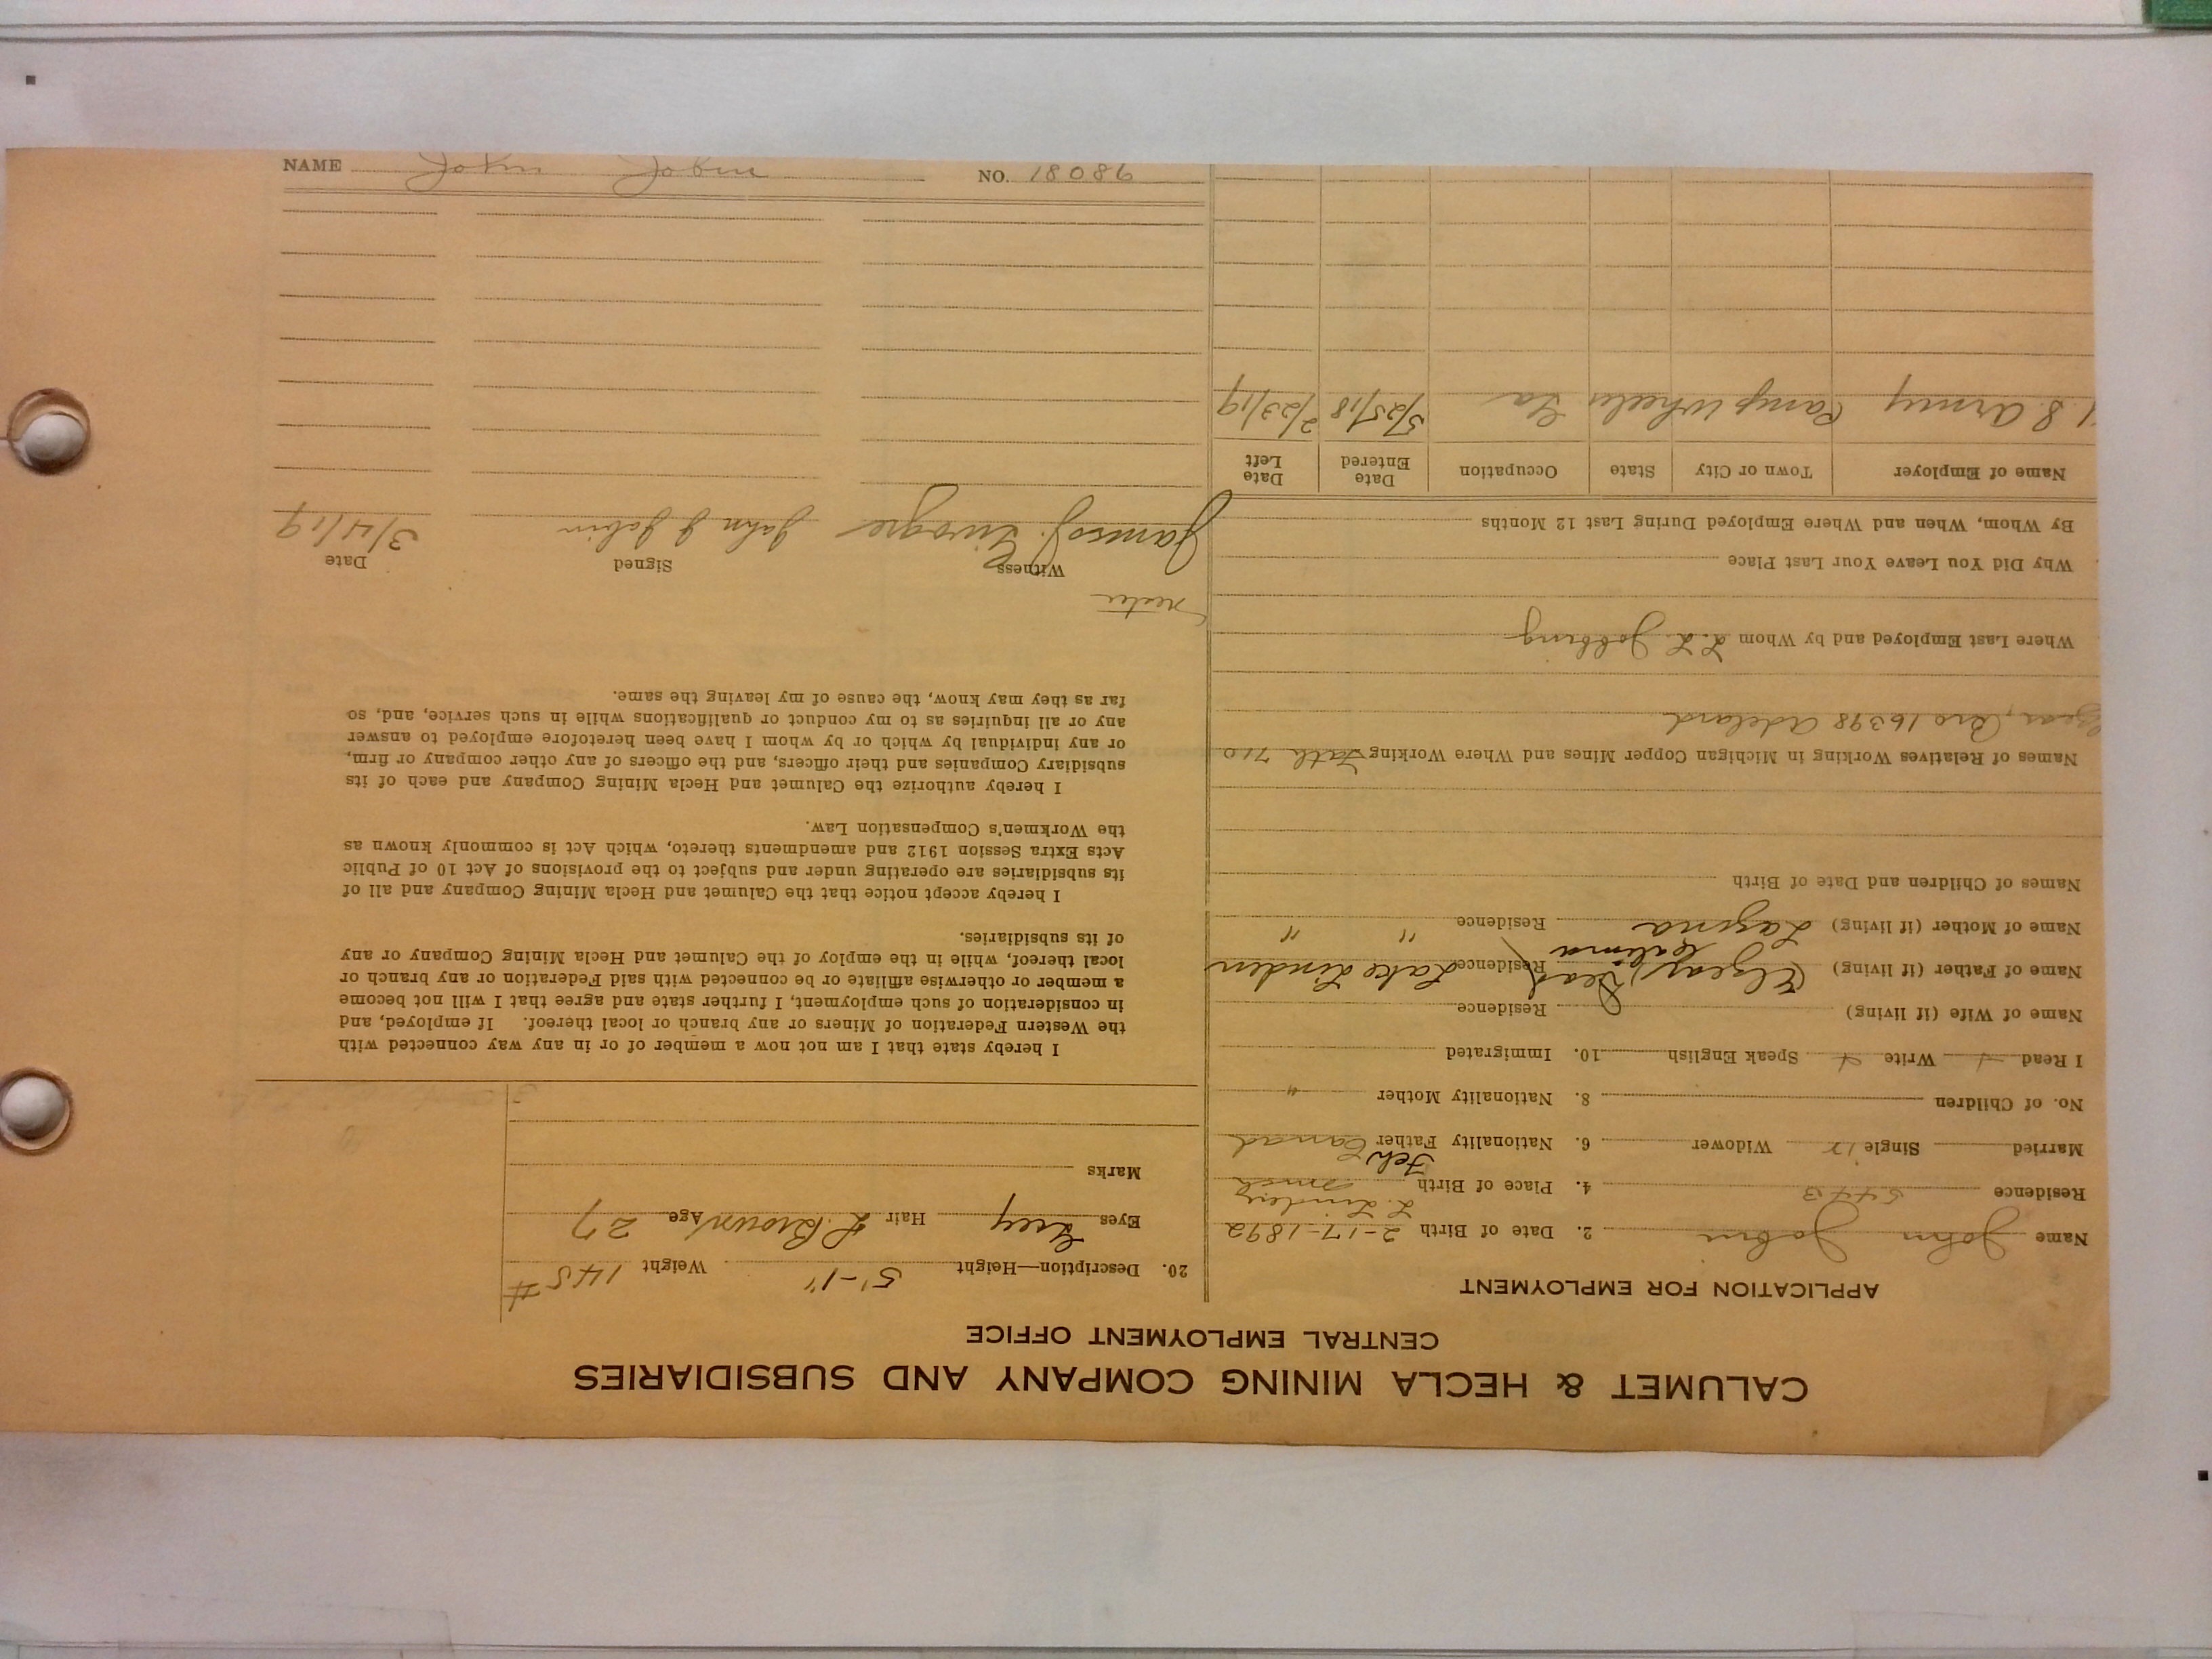 CALUMET & HECLA MINING COMPANY AND SUBSIDIARIES
CENTRAL EMPLOYMENT OFFICE
APPLICATION FOR EMPLOYMENT
Name John Jobin 2. Date of Birth 2-17-1892
Residence 5443 4. Place of Birth L. Linden Mich
Married Single Widower 6. Nationality Father Fch Canad
No. of Children 8. Nationality Mother "
I Read Write Speak English 10. Immigrated
Name of Wife (if living) Residence
Name of Father (if living) Elzear Dead Residence Lake Linden
Name of Mother (if living) Lazina Residence " "
Names of Children and Date of Birth
Names of Relatives Working in Michigan Copper Mines and Where Working Fath 710
Bro 16398 Adelard
Where Last Employed and by Whom L.L. Jobbing
Why Did You Leave Your Last Place
By Whom, When and Where Employed During Last 12 Months
Name of Employer Town or City State Occupation Date Entered Date Left
U.S. Army Camp Wheeler Ga 5/25/18 2/23/19
20. Description—Height 5'-1" Weight 145 #
Eyes Grey Hair L. Brown Age 27
Marks
I hereby state that I am not now a member of or in any way connected with
the Western Federation of Miners or any branch or local thereof. If employed, and
in consideration of such employment, I further state and agree that I will not become
a member or otherwise affiliate or be connected with said Federation or any branch or
local thereof, while in the employ of the Calumet and Hecla Mining Company or any
of its subsidiaries.
I hereby accept notice that the Calumet and Hecla Mining Company and all of
its subsidiaries are operating under and subject to the provisions of Act 10 of Public
Acts Extra Session 1912 and amendments thereto, which Act is commonly known as
the Workmen's Compensation Law.
I hereby authorize the Calumet and Hecla Mining Company and each of its
subsidiary Companies and their officers, and the officers of any other company or firm,
or any individual by which or by whom I have been heretofore employed to answer
any or all inquiries as to my conduct or qualifications while in such service, and, so
far as they may know, the cause of my leaving the same.
Witness Signed Date
James J. John J Jobin 3/4/19
NAME John Jobin NO. 18086